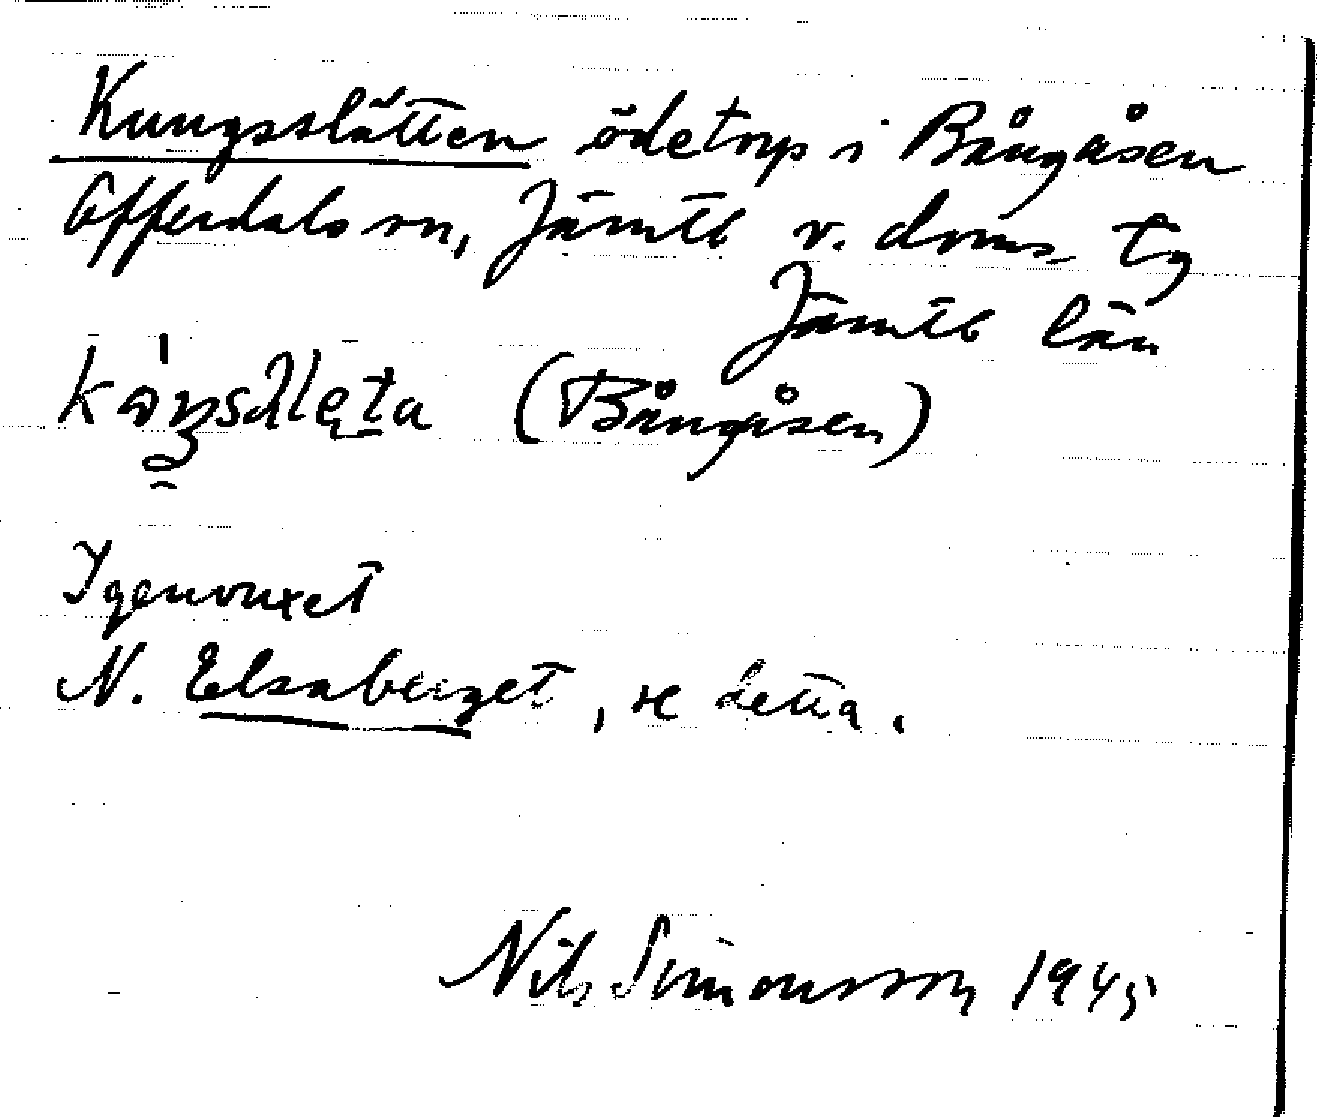 Kungsslätten ödetorp i Bångåsen
Offerdals sn, Jämtl v. doms. tg
Jämtl län
(Bångåsen)
Igenvuxet
N. Elsaberget, se detta.
Nils Simonsson 1945